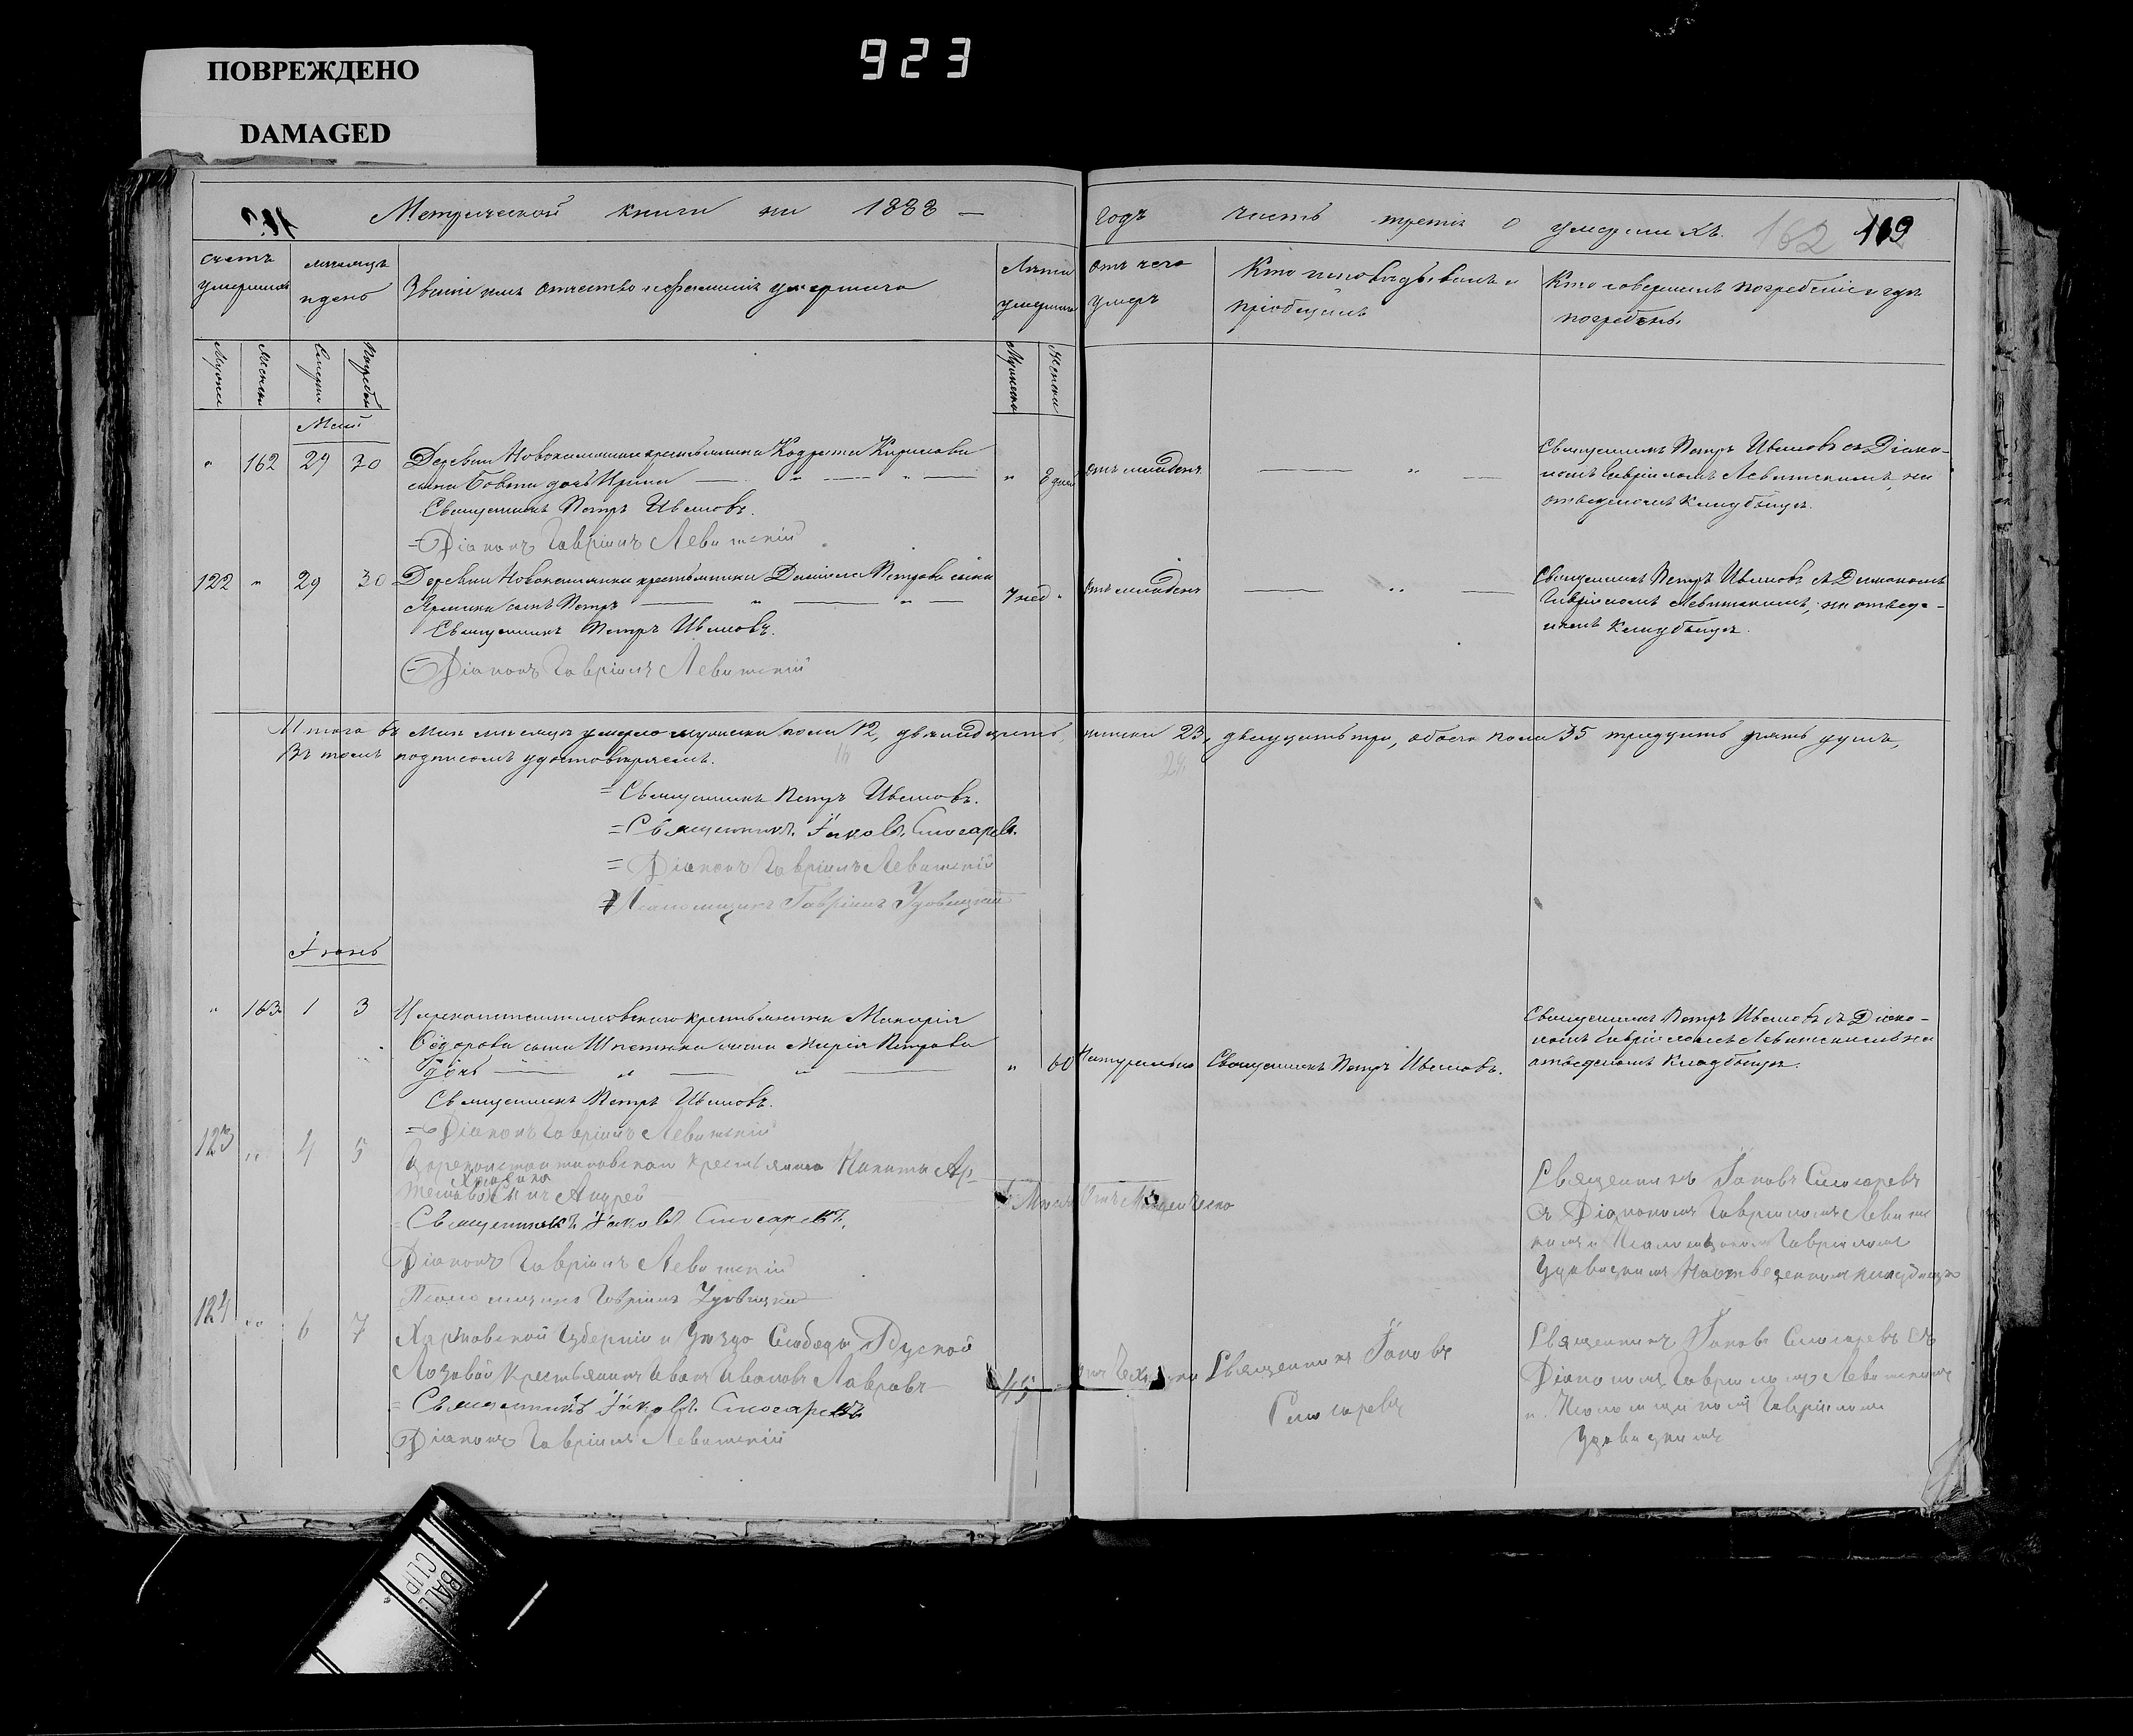 923
ПОВРЕЖДЕНО
DAMAGED
Метрической книги на 1888 —
годъ часть третья о умершихъ. 162 119
счетъ умершихъ
мѣсяцъ и день
Званіе имя отчество и фамилія умершаго
Лѣта умершаго
отъ чего умеръ
Кто исповѣдывалъ и пріобщалъ
Кто совершалъ погребеніе и гдѣ погребенъ.
Мужск
Женск
Смерти
Погребен
Мужеска
Женска
Май
" 162 29 30
Деревни Новокаменки крестьянина Кодрата Кирилова
сына Бовта дочь Ирина — " — " —
Священникъ Петръ Ивановъ.
= Діаконъ Гавріилъ Левитскій
" 8 дней
отъ младенч
— " —
Священникъ Петръ Ивановъ съ Діако-
номъ Гавріиломъ Левитскимъ, на
отведеномъ кладбищѣ.
122 " 29 30
Деревни Новокаменки крестьянина Данила Петрова сына
сынъ Петръ — " — " —
Священникъ Петръ Ивановъ.
= Діаконъ Гавріилъ Левитскій
7 нед "
отъ младенч
— " —
Священникъ Петръ Ивановъ съ Диакономъ
Гавріиломъ Левитскимъ, на отведе-
номъ кладбищѣ.
Итого въ Маѣ мѣсяцѣ умерло мужеска пола 12, двѣнадцать, женска 23, двадцать три, обоего пола 35 тридцать пять душъ,
Въ томъ подписомъ удостовѣряемъ.
= Священникъ Петръ Ивановъ.
= Священникъ Іаковъ Слюсаревъ.
= Діаконъ Гавріилъ Левитскій
= Псаломщикъ Гавріилъ Удовицкій
Іюнь
" 163 1 3
Цареконстантиновскаго крестьянина Макарія
Ѳедорова сына жена Марія Петрова
дочь — " — " —
Священникъ Петръ Ивановъ.
= Діаконъ Гавріилъ Левитскій
" 60
Натурально
Священникъ Петръ Ивановъ.
Священникъ Петръ Ивановъ съ Діако-
номъ Гавріиломъ Левитскимъ на
отведеномъ кладбищѣ.
123 " 4 5
Цареконстантиновскаго крестьянина Никиты Ар-
сынъ Андрей
= Священникъ Іаковъ Слюсаревъ.
Діаконъ Гавріилъ Левитскій
Псаломщикъ Гавріилъ Удовицкій
Священникъ Іаковъ Слюсаревъ
съ Діакономъ Гавріиломъ Левитс
кимъ и Псаломщикомъ Гавріиломъ
Удовицкимъ На отведенномъ кладбищѣ
124 " 6 7
Харьковской Губерніи и Уѣзда Слободы Руской
Лозовой Крестьянинъ Иванъ Ивановъ Лавровъ
= Священникъ Іаковъ Слюсаревъ
Діаконъ Гавріилъ Левитскій
45
отъ
Священникъ Іаковъ
Слюсаревъ
Священникъ Іаковъ Слюсаревъ съ
Діакономъ Гавріиломъ Левитскимъ
и Псаломщикомъ Гавріиломъ
Удовицкимъ
BALL
CLIP